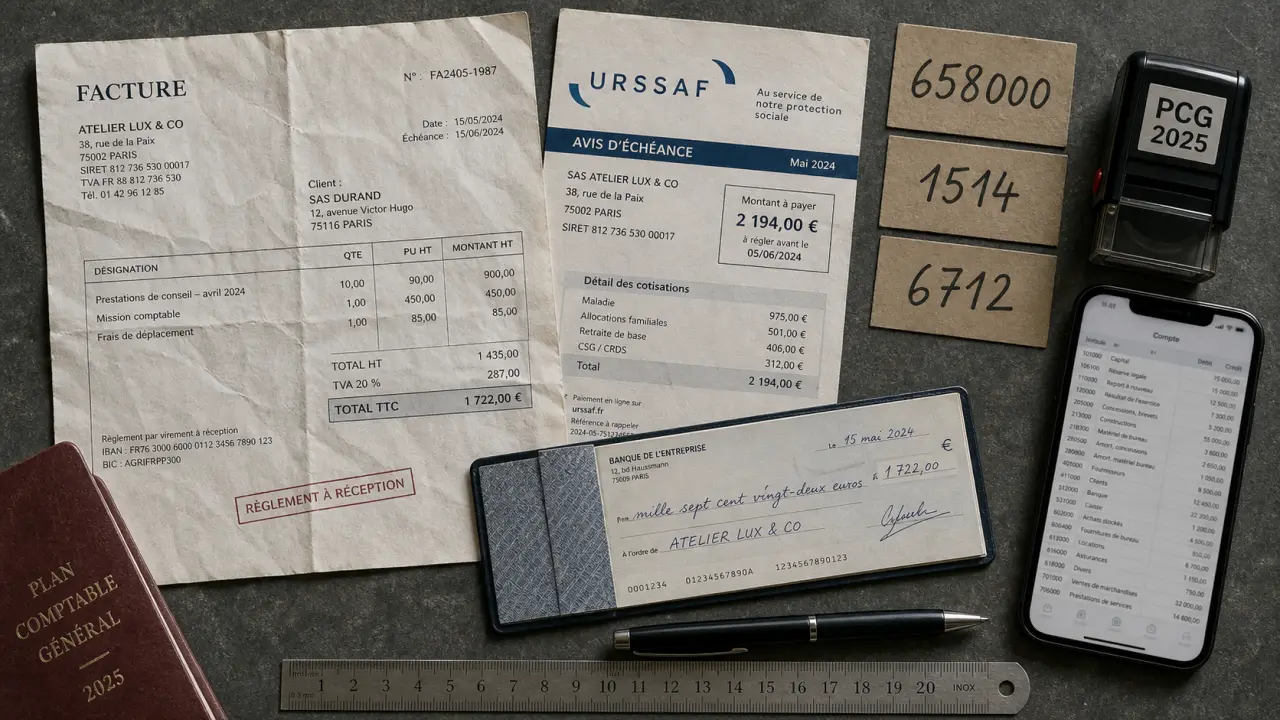 FACTURE
N° : FA2405-1987
ATELIER LUX & CO
38, rue de la Paix
75002 PARIS
SIRET 812 736 530 00017
TVA FR 88 812 736 530
Tél. 01 42 96 12 85
Date : 15/05/2024
Échéance : 15/06/2024
Client :
SAS DURAND
12, avenue Victor Hugo
75116 PARIS
DÉSIGNATION QTE PU HT MONTANT HT
Prestations de conseil – avril 2024 10,00 90,00 900,00
Mission comptable 1,00 450,00 450,00
Frais de déplacement 1,00 85,00 85,00
TOTAL HT 1 435,00
TVA 20 % 287,00
TOTAL TTC 1 722,00 €
Règlement par virement à réception
IBAN : FR76 3000 6000 0112 3456 7890 123
BIC : AGRIFRPP300
RÈGLEMENT À RÉCEPTION
URSSAF
Au service de
notre protection
sociale
AVIS D'ÉCHÉANCE Mai 2024
SAS ATELIER LUX & CO
38, rue de la Paix
75002 PARIS
SIRET 812 736 530 00017
Montant à payer
2 194,00 €
à régler avant le
05/06/2024
Détail des cotisations
Maladie 975,00 €
Allocations familiales 501,00 €
Retraite de base 406,00 €
CSG / CRDS 312,00 €
Total 2 194,00 €
Paiement en ligne sur
urssaf.fr
Référence à rappeler
658000
1514
6712
PCG
2025
BANQUE DE L'ENTREPRISE
12, bd Haussmann
75009 PARIS
Le 15 mai 2024
€
mille sept cent vingt-deux euros 1 722,00
À l'ordre de ATELIER LUX & CO
0001234 01234567890A 1234567890123
Compte
Débit Crédit
Capital
Réserve légale
Report à nouveau
Résultat de l'exercice
Concessions, brevets
Constructions
Matériel de bureau
Amort. concessions
Amort. matériel bureau
Fournisseurs
Clients
Banque
Caisse
Achats stockés
Fournitures de bureau
Locations
Assurances
Divers
Ventes de marchandises
Prestations de services
PLAN
COMPTABLE
GÉNÉRAL
2025
1 2 3 4 5 6 7 8 9 10 11 12 13 14 15 16 17 18 19 20 INOX